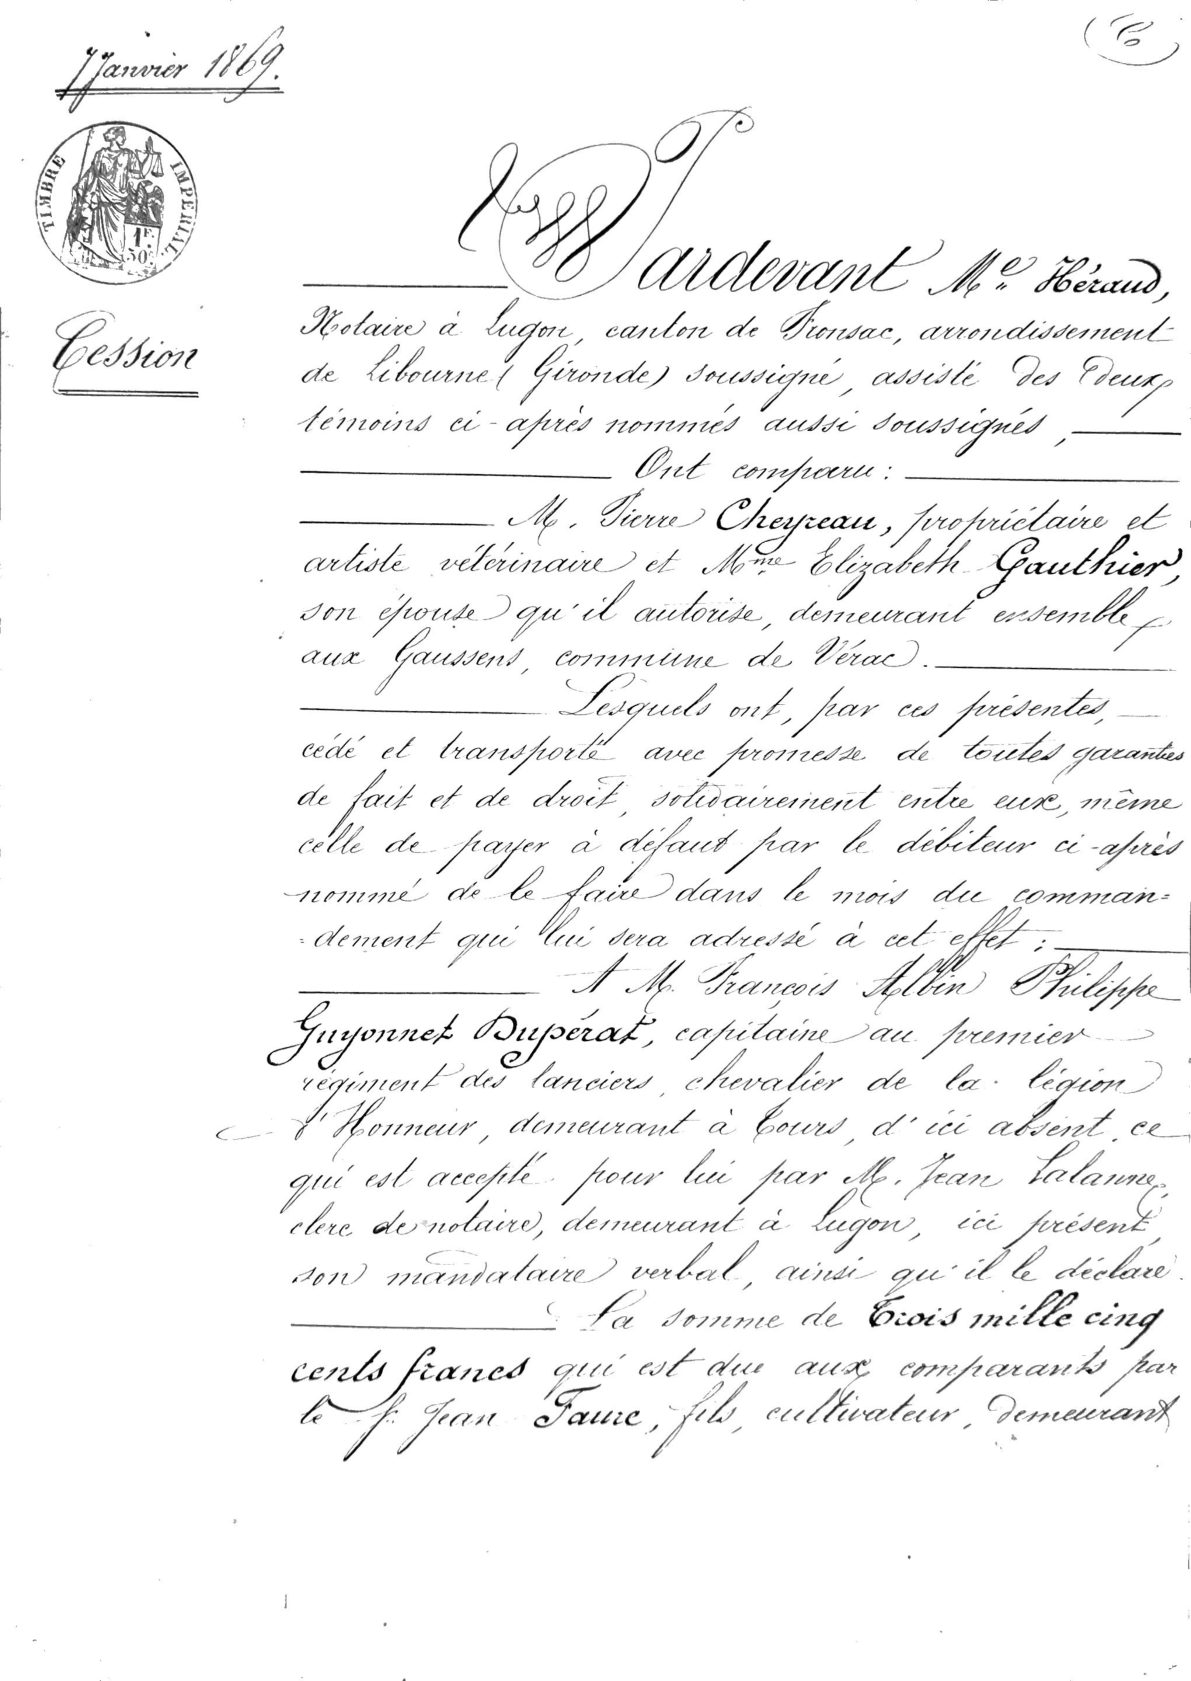 7 Janvier 1869.
TIMBRE IMPERIAL
1F
50C
Cession
Pardevant Me. Héraud,
Notaire à Lugon, canton de Fronsac, arrondissement
de Libourne (Gironde) soussigné, assisté des deux
témoins ci-après nommés aussi soussignés,
Ont comparu:
M. Pierre Cheyreau, propriétaire et
artiste vétérinaire et Mme Elizabeth Gauthier,
son épouse qu'il autorise, demeurant ensemble
aux Gaussens, commune de Vérac.
Lesquels ont, par ces présentes,
cédé et transporté avec promesse de toutes garanties
de fait et de droit, solidairement entre eux, même
celle de payer à défaut par le débiteur ci-après
nommé de le faire dans le mois du comman=
=dement qui lui sera adressé à cet effet;
A M. François Albin Philippe
Guyonnet Dupérat, capitaine au premier
régiment des lanciers, chevalier de la légion
d'Honneur, demeurant à Tours, d'ici absent, ce
qui est accepté pour lui par M. Jean Lalanne,
clerc de notaire, demeurant à Lugon, ici présent,
son mandataire verbal, ainsi qu'il le déclare.
La somme de Trois mille cinq
cents francs qui est due aux comparants par
le sr. Jean Faure, fils, cultivateur, demeurant